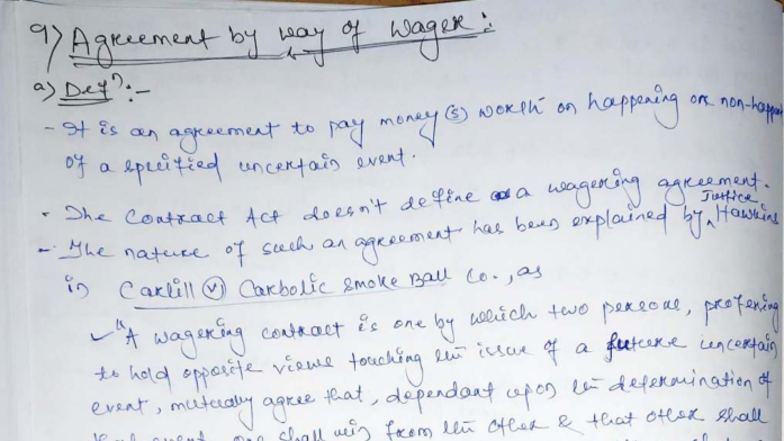 9) Agreement by way of Wager :
a) Defn :-
- It is an agreement to pay money(s) worth on happening or non-happen
of a specified uncertain event.
- The Contract Act doesn't define a wagering agreement.
- The nature of such an agreement has been explained by Justice Hawkins
in Carlill (v) Carbolic Smoke Ball Co., as
"A wagering contract is one by which two persons, profering
to hold opposite views touching the issue of a future uncertain
event, mutually agree that, dependant upon the determination of
event, one shall win from the other & that other shall